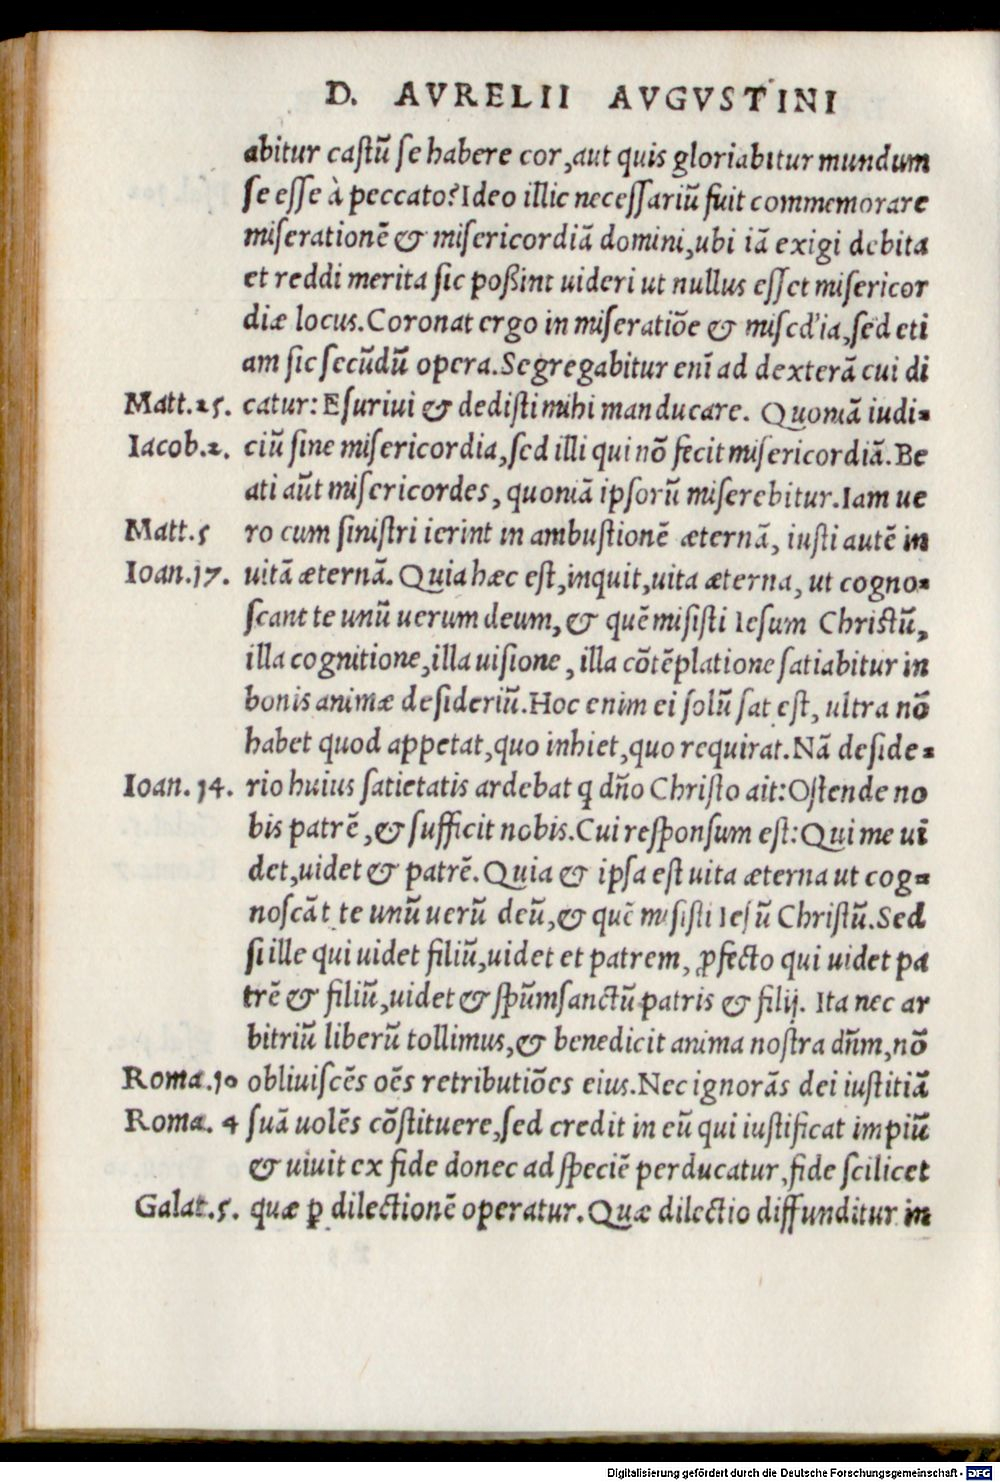 D. AVRELII AVGVSTINI
abitur castũ se habere cor, aut quis gloriabitur mundum
se esse à peccato? Ideo illic necessariũ fuit commemorare
miserationẽ & misericordiã domini, ubi iã exigi debita
et reddi merita sic poßint uideri ut nullus esset misericor
diæ locus. Coronat ergo in miseratiõe & miscd'ia, sed eti
am sic secũdũ opera. Segregabitur enĩ ad dexterã cui di
Matt.25. catur: Esuriui & dedisti mihi manducare. Quoniã iudi-
Iacob.2. ciũ sine misericordia, sed illi qui nõ fecit misericordiã. Be
ati aũt misericordes, quoniã ipsorũ miserebitur. Iam ue
Matt.5 ro cum sinistri ierint in ambustionẽ æternã, iusti autẽ in
Ioan.17. uitã æternã. Quia hæc est, inquit, uita æterna, ut cogno-
scant te unũ uerum deum, & quẽ misisti Iesum Christũ,
illa cognitione, illa uisione, illa cõtẽplatione satiabitur in
bonis animæ desideriũ. Hoc enim ei solũ sat est, ultra nõ
habet quod appetat, quo inhiet, quo requirat. Nã deside-
Ioan. 14. rio huius satietatis ardebat q dño Christo ait: Ostende no
bis patrẽ, & sufficit nobis. Cui responsum est: Qui me ui
det, uidet & patrẽ. Quia & ipsa est uita æterna ut cog-
noscãt te unũ uerũ deũ, & quẽ misisti Iesũ Christũ. Sed
si ille qui uidet filiũ, uidet et patrem, ꝓfecto qui uidet pa
trẽ & filiũ, uidet & spũmsanctũ patris & filij. Ita nec ar
bitriũ liberũ tollimus, & benedicit anima nostra dñm, nõ
Roma.10 obliuiscẽs oẽs retributiões eius. Nec ignorãs dei iustitiã
Roma. 4 suã uolẽs cõstituere, sed credit in eũ qui iustificat impiũ
& uiuit ex fide donec ad speciẽ perducatur, fide scilicet
Galat.5. quæ ꝑ dilectionẽ operatur. Quæ dilectio diffunditur in
Digitalisierung gefördert durch die Deutsche Forschungsgemeinschaft - DFG